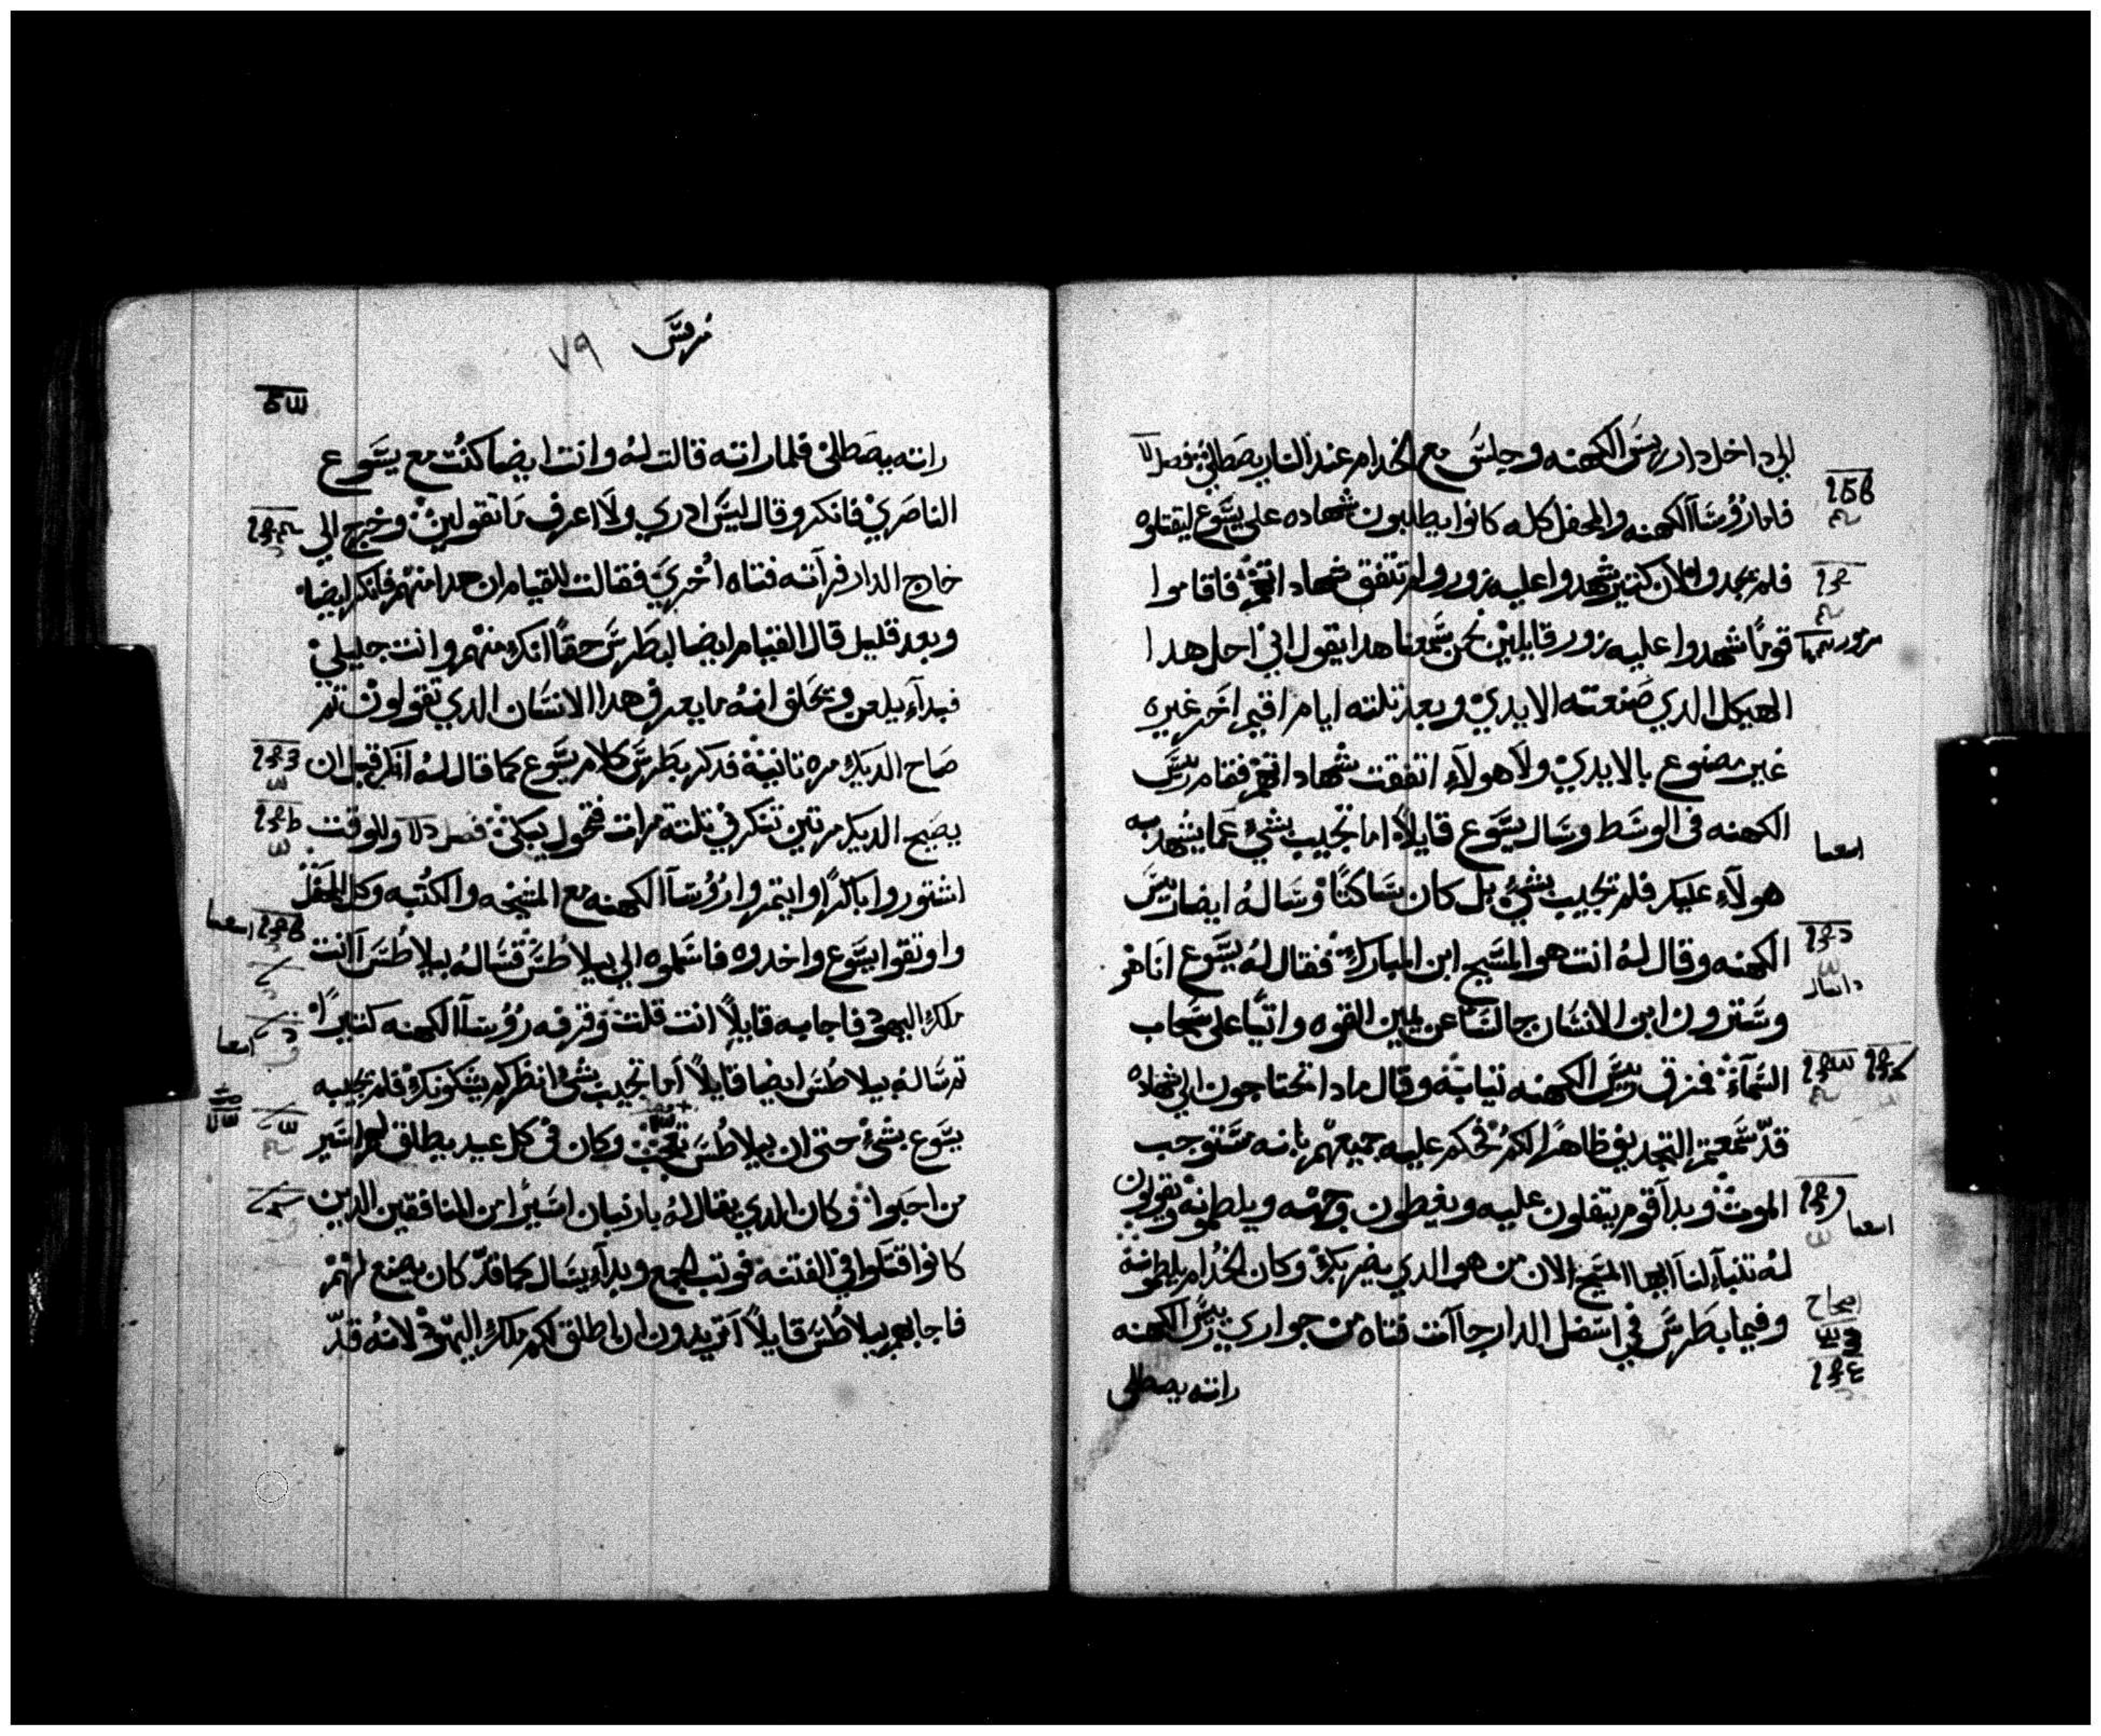 الي داخل دار ريس الكهنه وجلس مع الخدام عند النار يصطلي فصل
فاما رؤسآ الكهنه والمحفل كله كانوا يطلبون شهاده على يسوع ليقتلوه
فلم يجدوا لان كتير شهدوا عليه بزور ولم تتفق شهاداتهم فاقاموا
قومًا شهدوا عليه بزور قايلين نحن سمعنا هدا يقول اني احل هدا
الهيكل الدي صنعته الايدي وبعد تلتة ايام اقيم اخر غيره
غير مصنوع بالايدي ولا هولاء اتفقت شهاداتهم فقام ريس
الكهنه في الوسط وسال يسوع قايلاً اما تجيب بشي عما يشهد به
هولاء عليك فلم تجيب بشي بل كان ساكتًا وساله ايضا ريس
الكهنه وقال له انت هو المسيح ابن المبارك فقال له يسوع انا هو
وسترون ابن الانسان جالسًا عن يمين القوه واتيًا على سحاب
السمآء فمزق ريس الكهنه تيابه وقال مادا تحتاجون الي شهاده
قد سمعتم التجديف ظاهرًا لكم فحكم عليه جميعهم بانه مستوجب
الموت وبدآ قوم يتفلون عليه ويغطون وجهه ويلطمونه ويقولون
له تنباء لنا ايها المسيح الان من هو الدي يضربك وكان الخدام يلطمونه
وفيما بطرس في اسفل الدار جاآت فتاه من جواري ريس الكهنه
راته يصطلي
اصحاح
مرقس
٧٩
راته يصطلي فلما راته قالت له وانت ايضا كنت مع يسوع
الناصري فانكر وقال ليس ادري ولا اعرف ما تقولين وخرج الي
خارج الدار فرآته فتاه اخري فقالت للقيام ان هدا منهم فانكر ايضا
وبعد قليل قال القيام ايضا لبطرس حقاً انك منهم وانت جليلي
فبدآء يلعن ويحلف انه ما يعرف هدا الانسان الدي تقولون تم
صاح الديك مره تانية فدكر بطرس كلام يسوع كما قال له انظر قبل ان
يصيح الديك مرتين تنكرني تلتة مرات فتحول يبكي فصل وللوقت
اشتوروا باكرًا وايتمروا رؤسآ الكهنه مع المشيخه والكتبه وكل المحفل
واوتقوا يسوع واخدوه فاسلموه الي بيلاطس فساله بيلاطس آانت
ملك اليهود فاجابه قايلاً انت قلت وقرفه رؤسآ الكهنه كتيرًا
تم ساله بيلاطس ايضا قايلاً اما تجيب بشي انظر كم يشكونك فلم يجيبه
يسوع بشي حتى ان بيلاطس تعجب وكان في كل عيد يطلق لهم اسير
من احبوا وكان الدي يقال له بارنبان اسيرًا من المنافقين الدين
كانوا قتلوا في الفتنة فوتب الجمع وبدآء يسال كما قد كان يصنع لهم
فاجابهم بيلاطس قايلاً اتريدون ان اطلق لكم ملك اليهود لانه قد